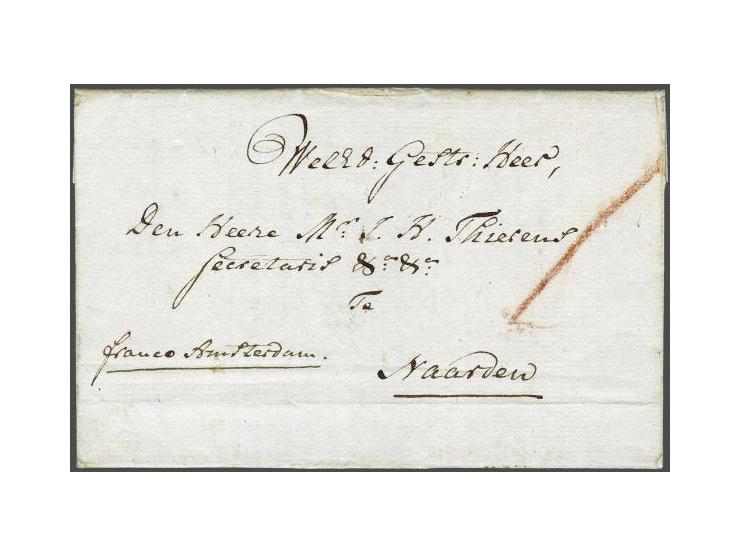 Weled: Gestr: Heer,
Den Heere Mr. J. H. Thierens
Secretaris &c. &c.
Te
franco Amsterdam.
Naarden